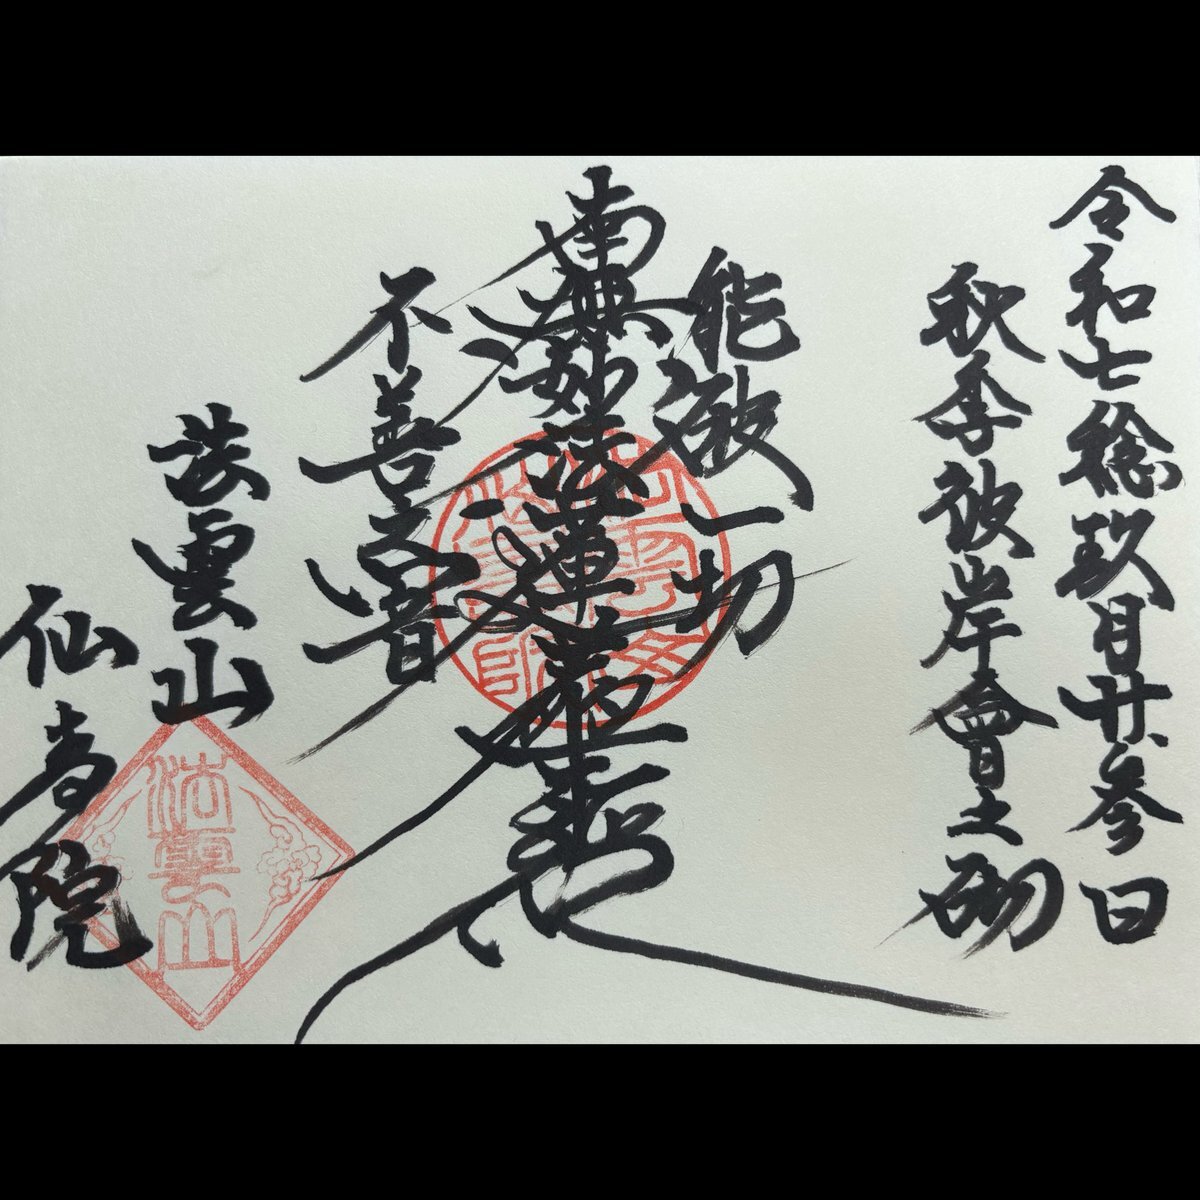 令和七稔玖月廿参日
秋季彼岸會之砌
能破一切
南無妙法蓮華経
不善之闇
法雲山
仙寿院
法雲山